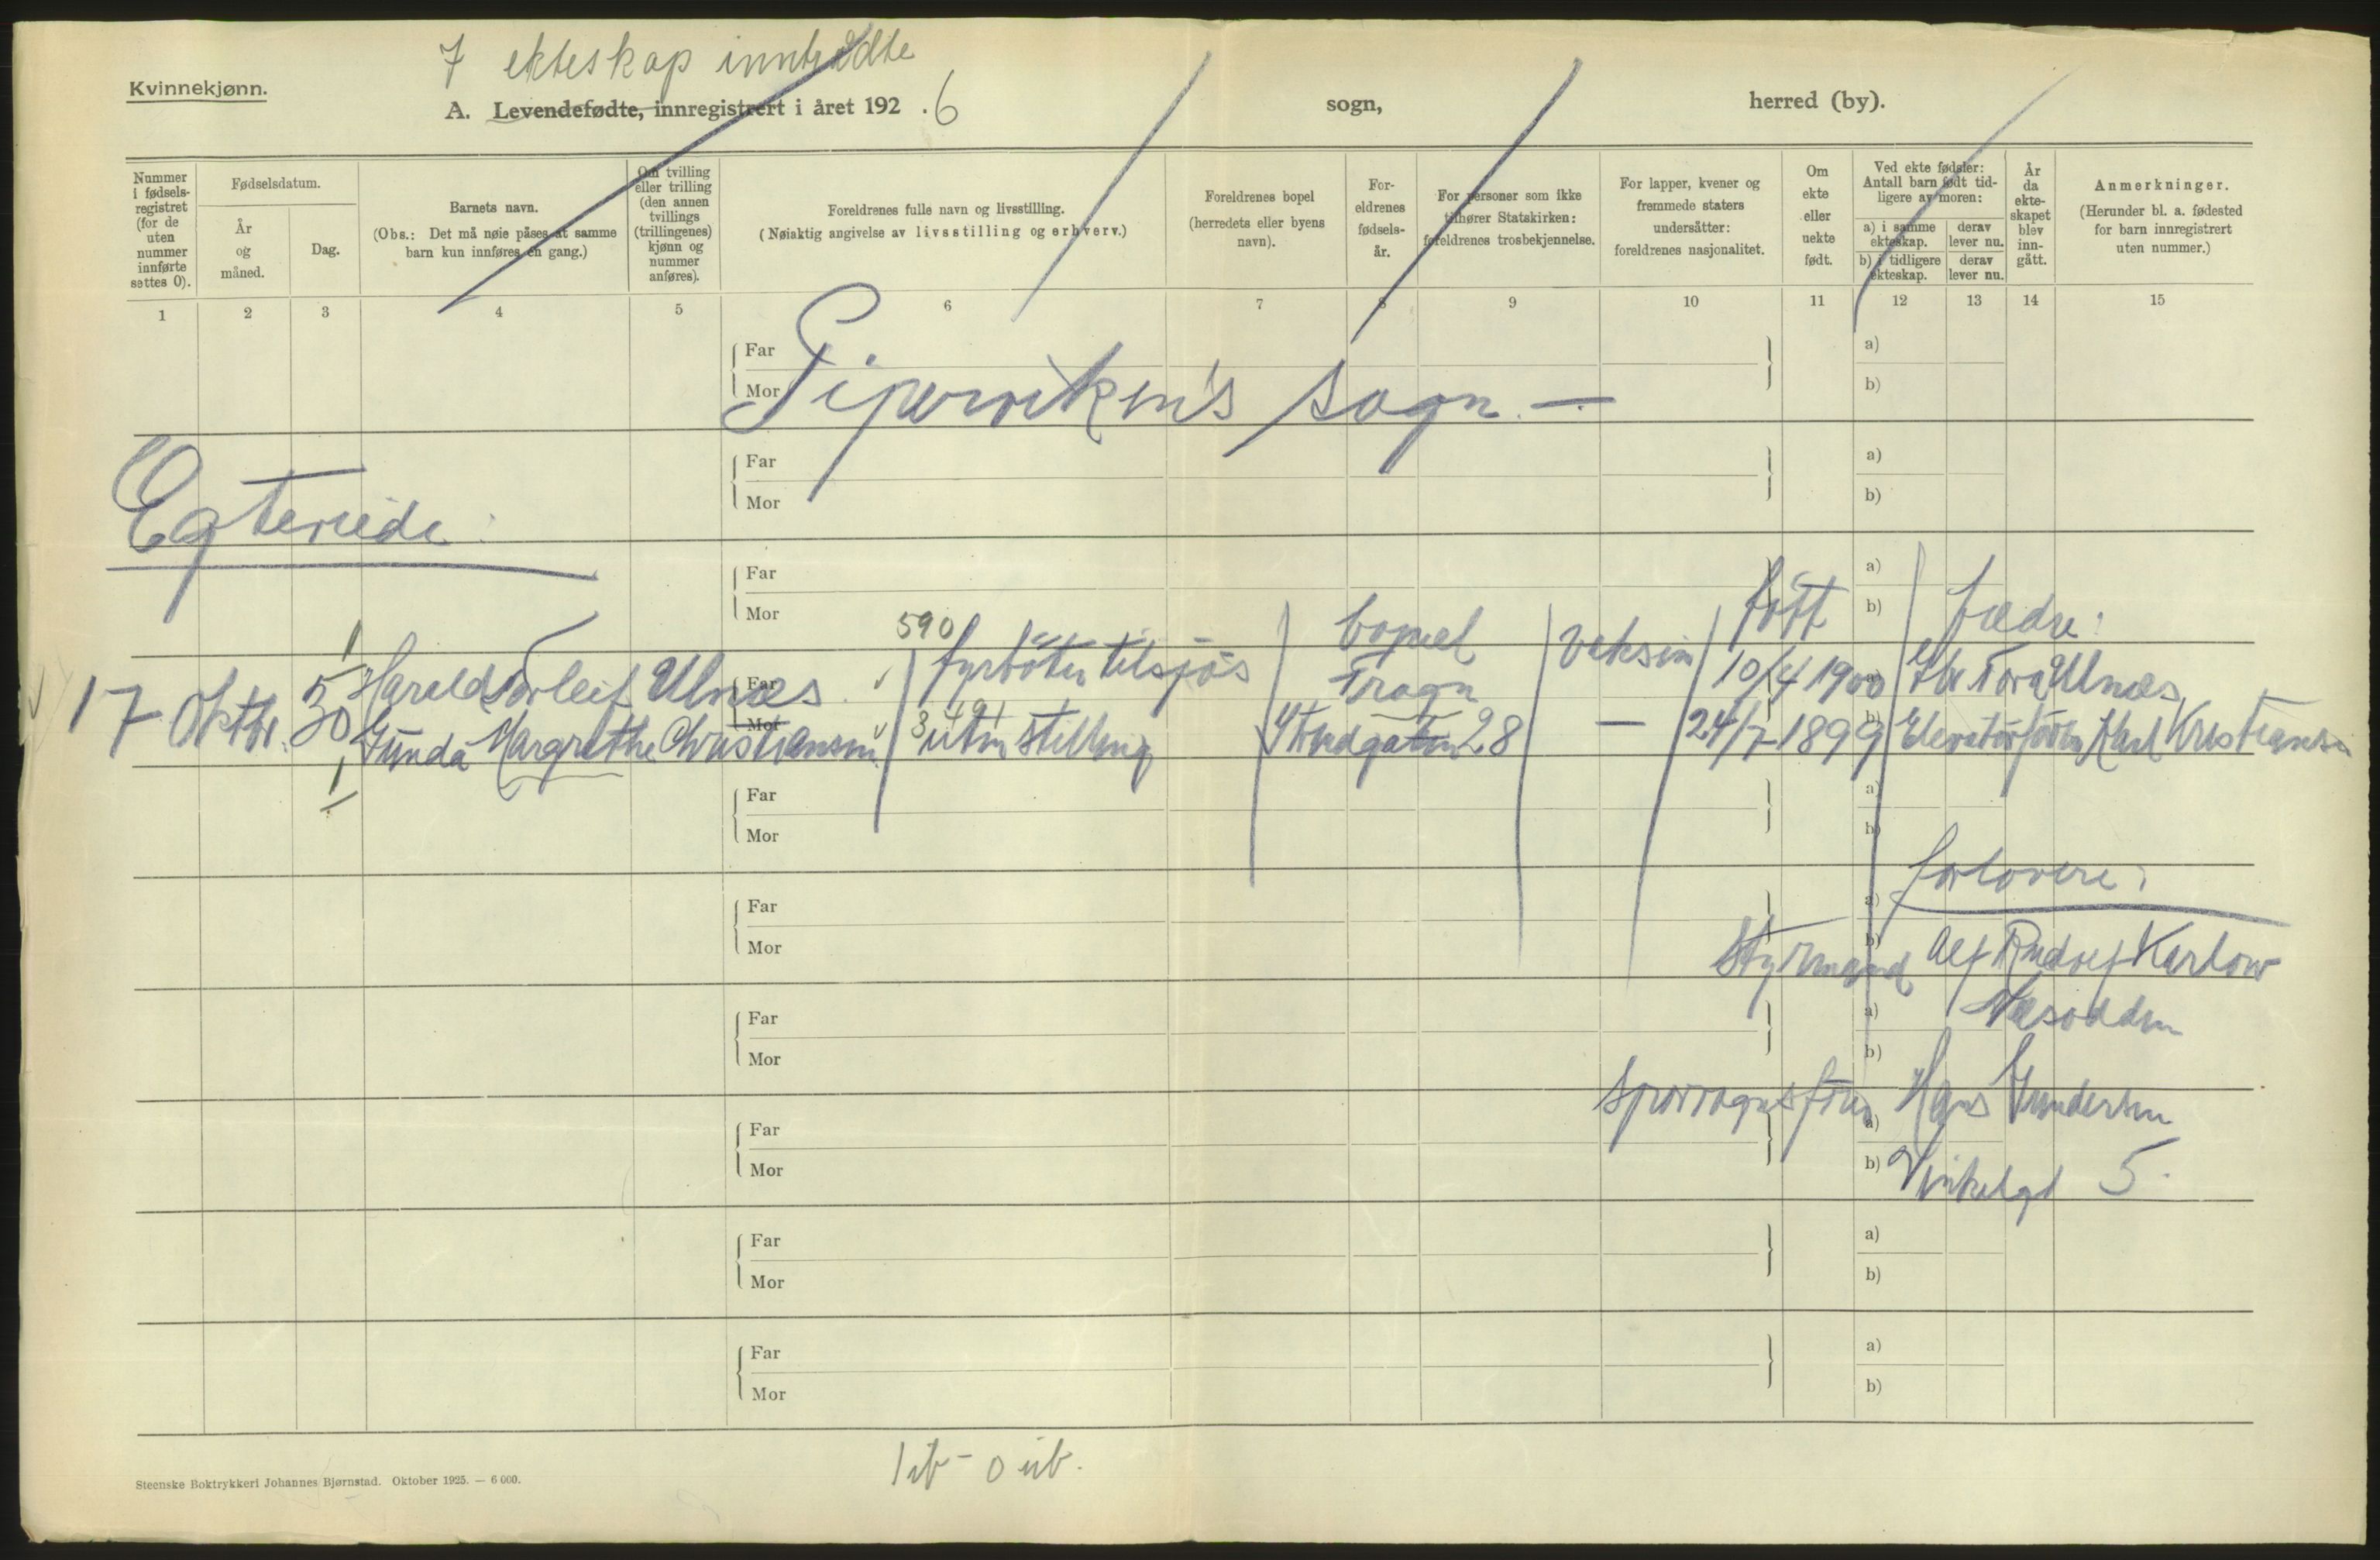 7 ekteskap inntrådte
Kvinnekjønn.
A. Levendefødte, innregistrert i året 192.6 sogn, herred (by).
Nummer i fødselsregistret (for de uten nummer innførte settes 0).
Fødselsdatum.
År og måned.
Dag.
Barnets navn.
(Obs.: Det må nøie påses at samme barn kun innføres én gang.)
Om tvilling eller trilling (den annen tvillings (trillingenes) kjønn og nummer anføres).
Foreldrenes fulle navn og livsstilling.
(Nøiaktig angivelse av livsstilling og erhverv.)
Foreldrenes bopel
(herredets eller byens navn).
Foreldrenes fødselsår.
For personer som ikke tilhører Statskirken: foreldrenes trosbekjennelse.
For lapper, kvener og fremmede staters undersåtter: foreldrenes nasjonalitet.
Om ekte eller uekte født.
Ved ekte fødsler: Antall barn født tidligere av moren:
a) i samme ekteskap.
derav lever nu.
b) i tidligere ekteskap.
derav lever nu.
År da ekteskapet blev inngått.
Anmerkninger.
(Herunder bl. a. fødested for barn innregistrert uten nummer.)
1 2 3 4 5 6 7 8 9 10 11 12 13 14 15
Far a)
Pipervikens sogn. —
Mor b)
Far a)
Mor b)
Egteviede:
Far a)
født fædre:
Mor b)
590 bopæl vaksin
17 Oktbr. 5 Harald Torleif Ulnæs fyrbøter tilsjøs Frogn 10/4 1900 Tora Ulnæs
Far
Mor
30 Gunda Margrethe Christiansen uten stilling Strndgaten 28 — 24/7 1899 Elevatorfører Karl Kristiansen
Far a)
Mor b)
forlovere:
Far a)
Mor b)
Styrmand Alf Rudolf Karlow
Næsodden
Far a)
Mor b)
Sporvognsfører Hans Gundersen
Far a)
Mor b)
Vinkelgt 5.
Far a)
Mor b)
Far a)
Mor b)
1 ib - 0 ub.
Steenske Boktrykkeri Johannes Bjørnstad. Oktober 1925. — 6 000.